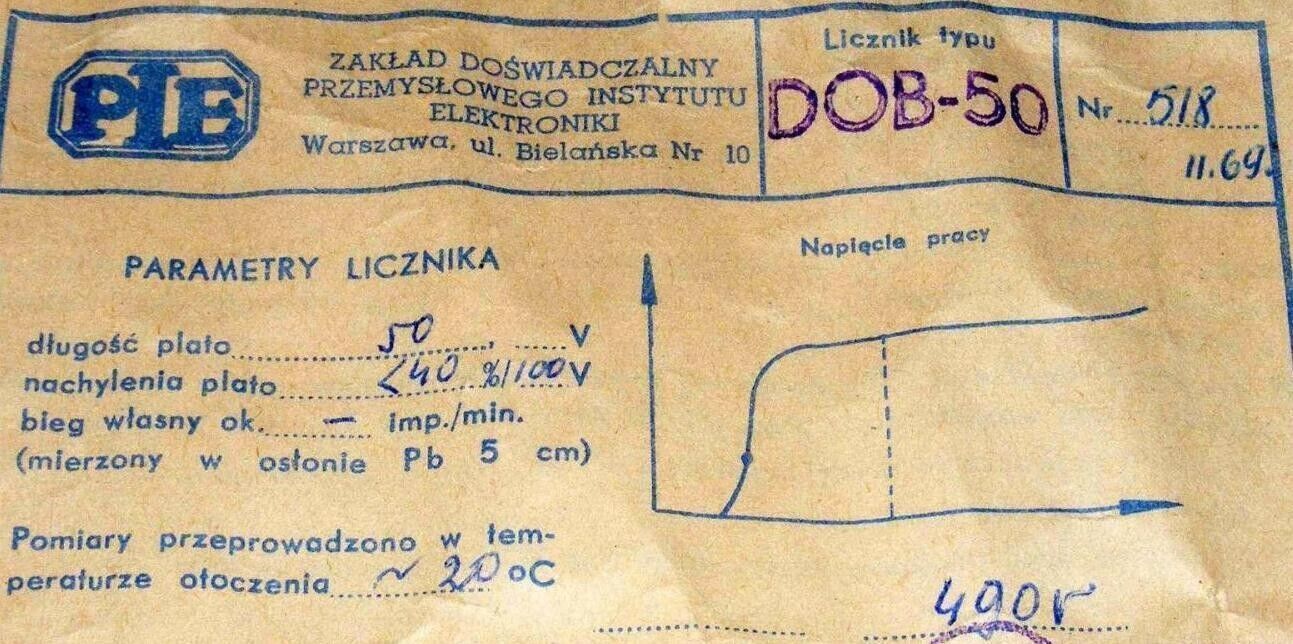 PIE
ZAKŁAD DOŚWIADCZALNY
PRZEMYSŁOWEGO INSTYTUTU
ELEKTRONIKI
Warszawa, ul. Bielańska Nr 10
Licznik typu
DOB-50
Nr 518
11.69.
PARAMETRY LICZNIKA
długość plato 50 V
nachylenia plato <40 %/100 V
bieg własny ok. — imp./min.
(mierzony w osłonie Pb 5 cm)
Pomiary przeprowadzono w tem-
peraturze otoczenia ~ 20 °C
Napięcie pracy
490V